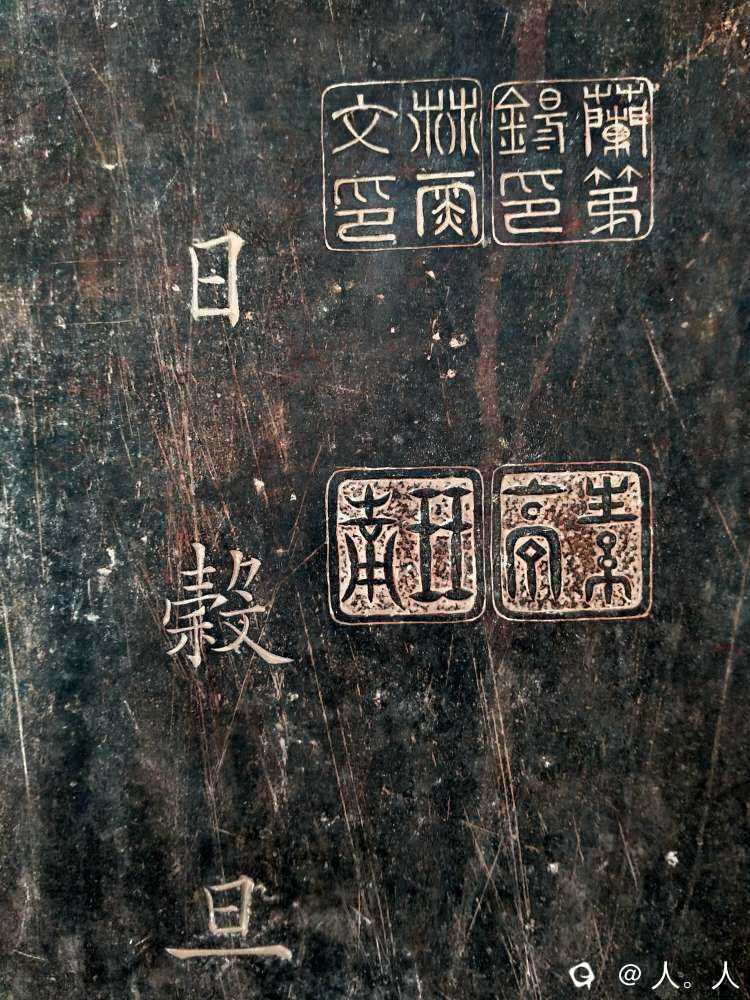 蘭第錫印
素亭
林雨文印
日穀旦
@人。人